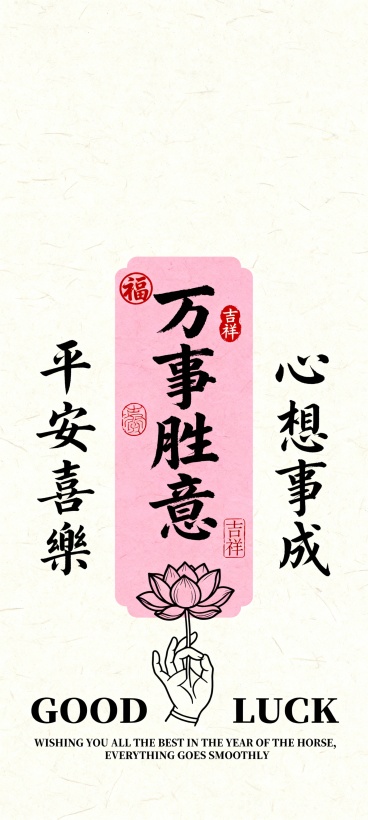 福
万事胜意
吉祥
吉祥
心想事成
平安喜樂
GOOD LUCK
WISHING YOU ALL THE BEST IN THE YEAR OF THE HORSE,
EVERYTHING GOES SMOOTHLY